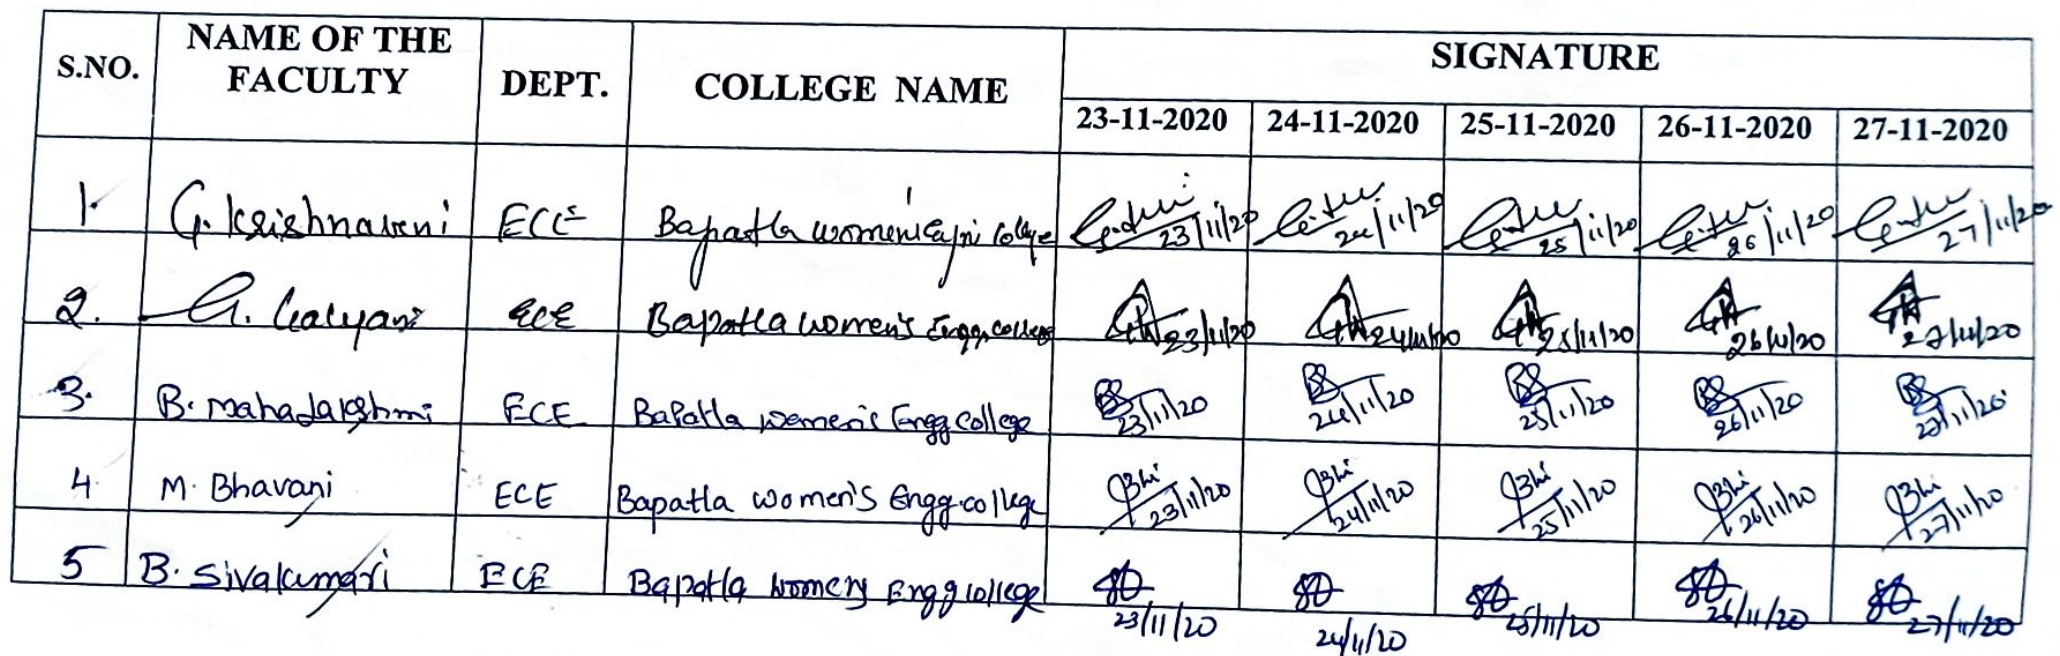 S.NO. NAME OF THE FACULTY DEPT. COLLEGE NAME SIGNATURE
23-11-2020 24-11-2020 25-11-2020 26-11-2020 27-11-2020
1. G. Krishnaveni ECE Bapatla women's college 23/11/20 24/11/20 25/11/20 26/11/20 27/11/20
2. G. Kalyani ECE Bapatla women's Engg college 23/11/20 24/11/20 25/11/20 26/11/20 27/11/20
3. B. Mahalakshmi ECE Bapatla women's Engg college 23/11/20 24/11/20 25/11/20 26/11/20 27/11/20
4 M. Bhavani ECE Bapatla women's Engg. college 23/11/20 24/11/20 25/11/20 26/11/20 27/11/20
5 B. Sivakumari ECE Bapatla womens Engg college 23/11/20 24/11/20 25/11/20 26/11/20 27/11/20